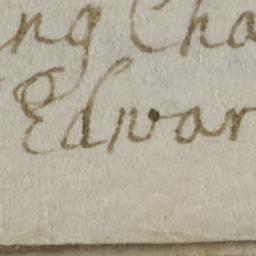 ng Cha
Edwar